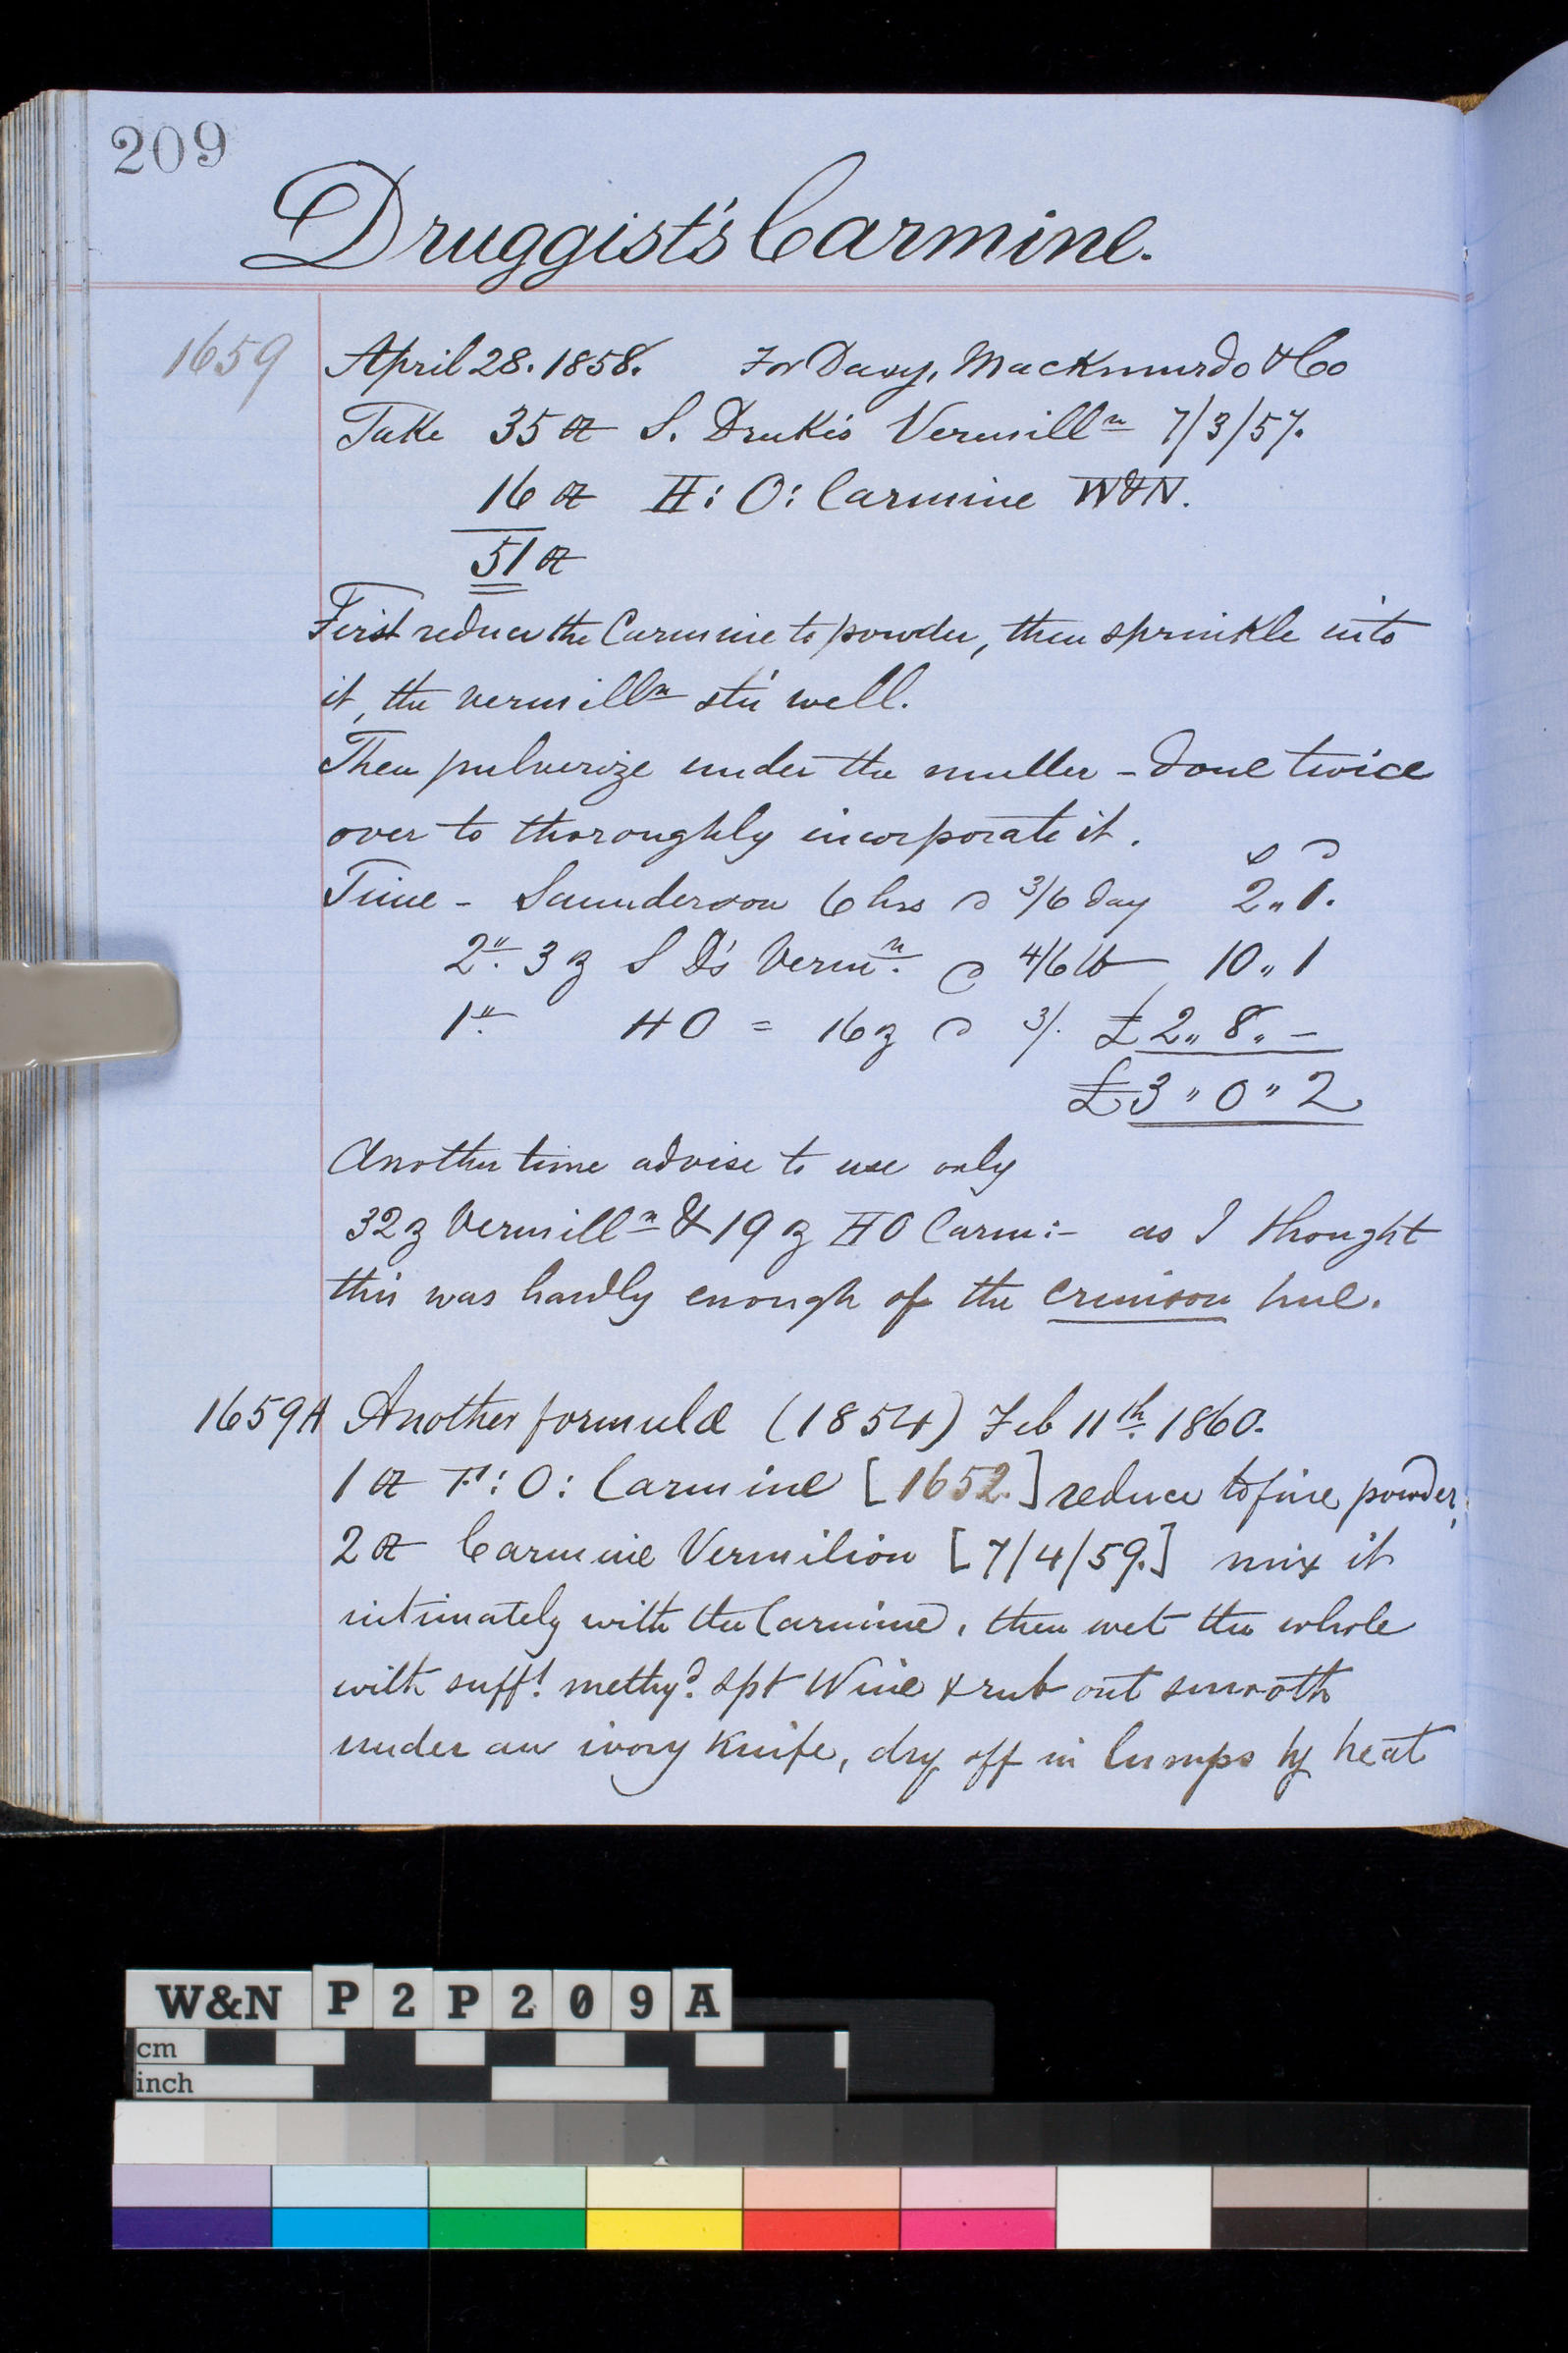 209
Druggist's Carmine.
1659 April 28. 1858. For Davy, Mackmurdo & Co
Take 35 oz S. Druke's Vermillⁿ 7/3/57.
16 oz H: O: Carmine W&N.
51 oz
First reduce the Carmine to powder, then sprinkle into
it, the vermillⁿ stir well.
Then pulverize under the muller - done twice
over to thoroughly incorporate it.
Time - Saunderson 6 hrs @ 3/6 day 2 " 1.
2". 3 ℥ S D's Vermⁿ. @ 4/6 lb 10 " 1
1". HO = 16 ℥ @ 3/. £2 " 8 " -
£3 " 0 " 2
Another time advise to use only
32 ℥ Vermillⁿ & 19 ℥ HO Carm:- as I thought
this was hardly enough of the crimson hue.
1659A Another formula (1854) Feb 11th. 1860.
1 oz F: O: Carmine [1652.] reduce to fine powder,
2 oz Carmine Vermilion [7/4/59.] mix it
intimately with the Carmine, then wet the whole
with suffᵗ. methyᵈ. spt Wine & rub out smooth
under an ivory knife, dry off in lumps by heat
W&N P2P209A
cm
inch